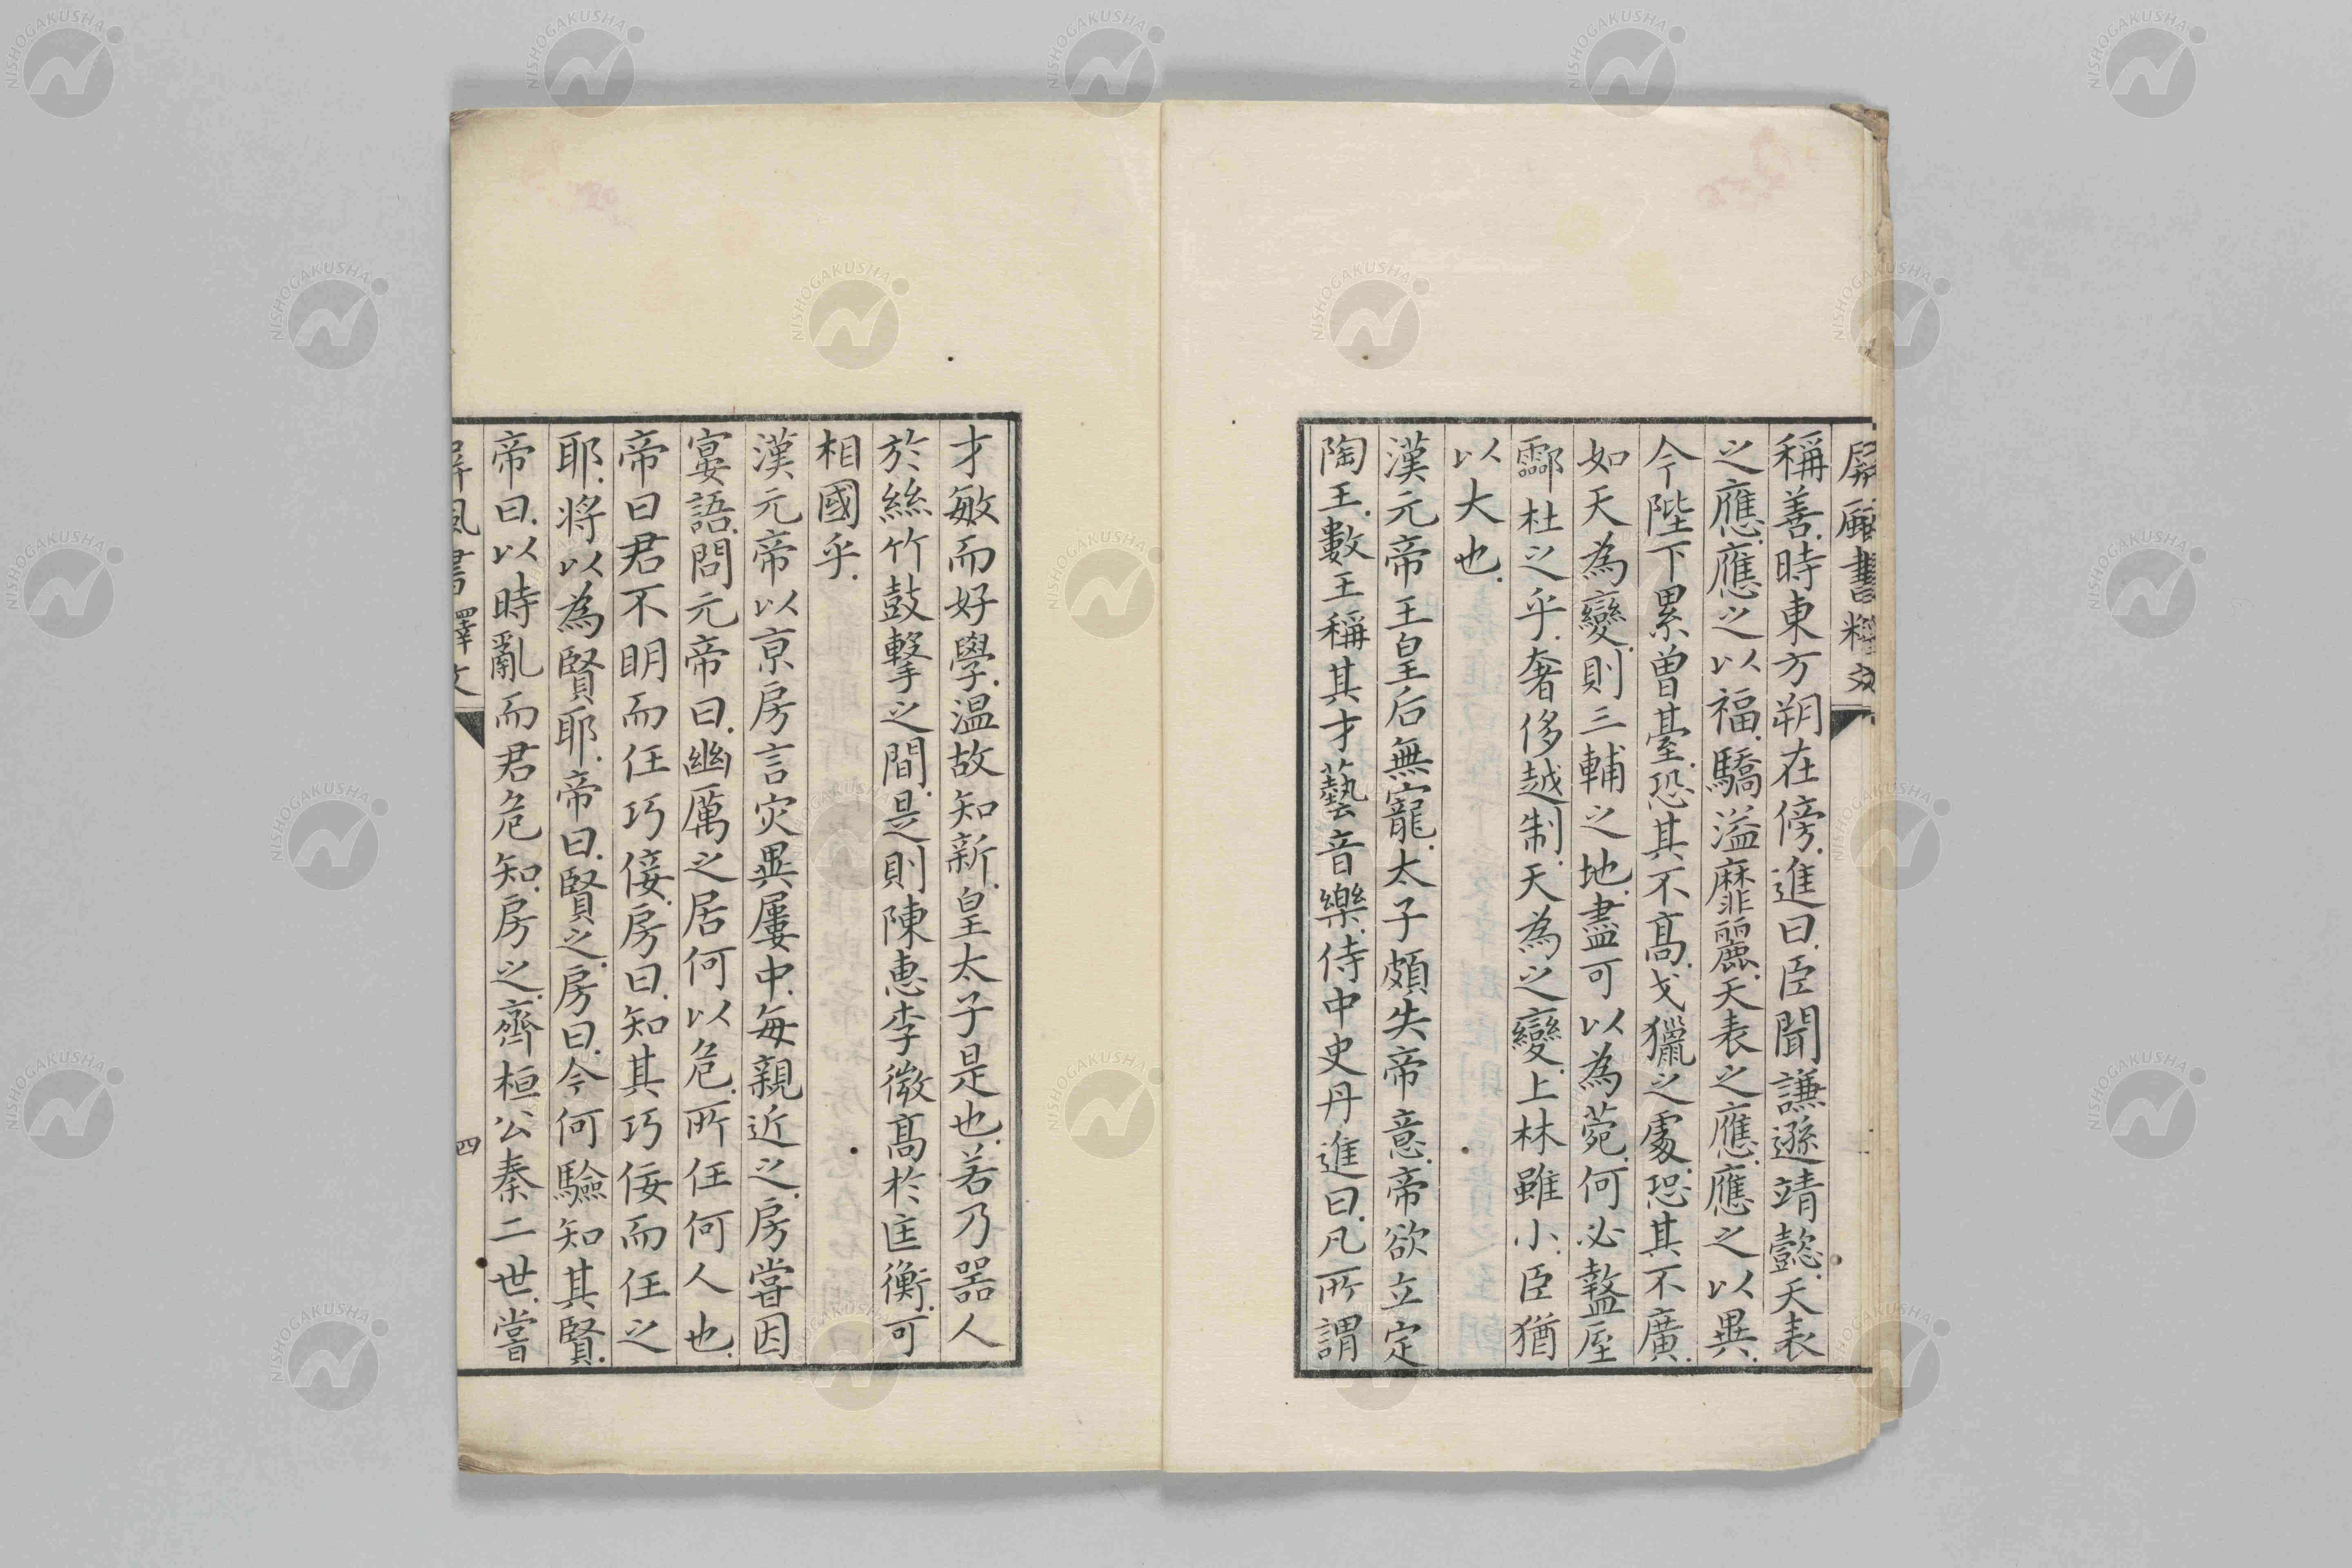 屏風書釋文
稱善.時東方朔在傍.進曰.臣聞謙遜靖懿.天表
之應.應之以福.驕溢靡麗.天表之應.應之以異.
今陛下累曾臺.恐其不高.弋獵之處.恐其不廣.
如天為變.則三輔之地.盡可以為菀.何必盩厔
酃杜之乎.奢侈越制.天為之變.上林雖小.臣猶
以大也.
漢元帝王皇后無寵.太子頗失帝意.帝欲立定
陶王.數王稱其才藝音樂.侍中史丹進曰.凡所謂
才敏而好學.温故知新.皇太子是也.若乃器人
於絲竹鼓撃之間.是則陳惠李微高於匡衡.可
相國乎.
漢元帝以京房言灾異屢中.每親近之.房嘗因
宴語.問元帝曰.幽厲之居何以危.所任何人也.
帝曰君不明而任巧佞.房曰.知其巧佞而任之
耶.将以為賢耶.帝曰.賢之.房曰.今何驗知其賢.
帝曰.以時亂而君危知.房之.齊桓公秦二世.嘗
屏風書釋文
四
NISHOGAKUSHA